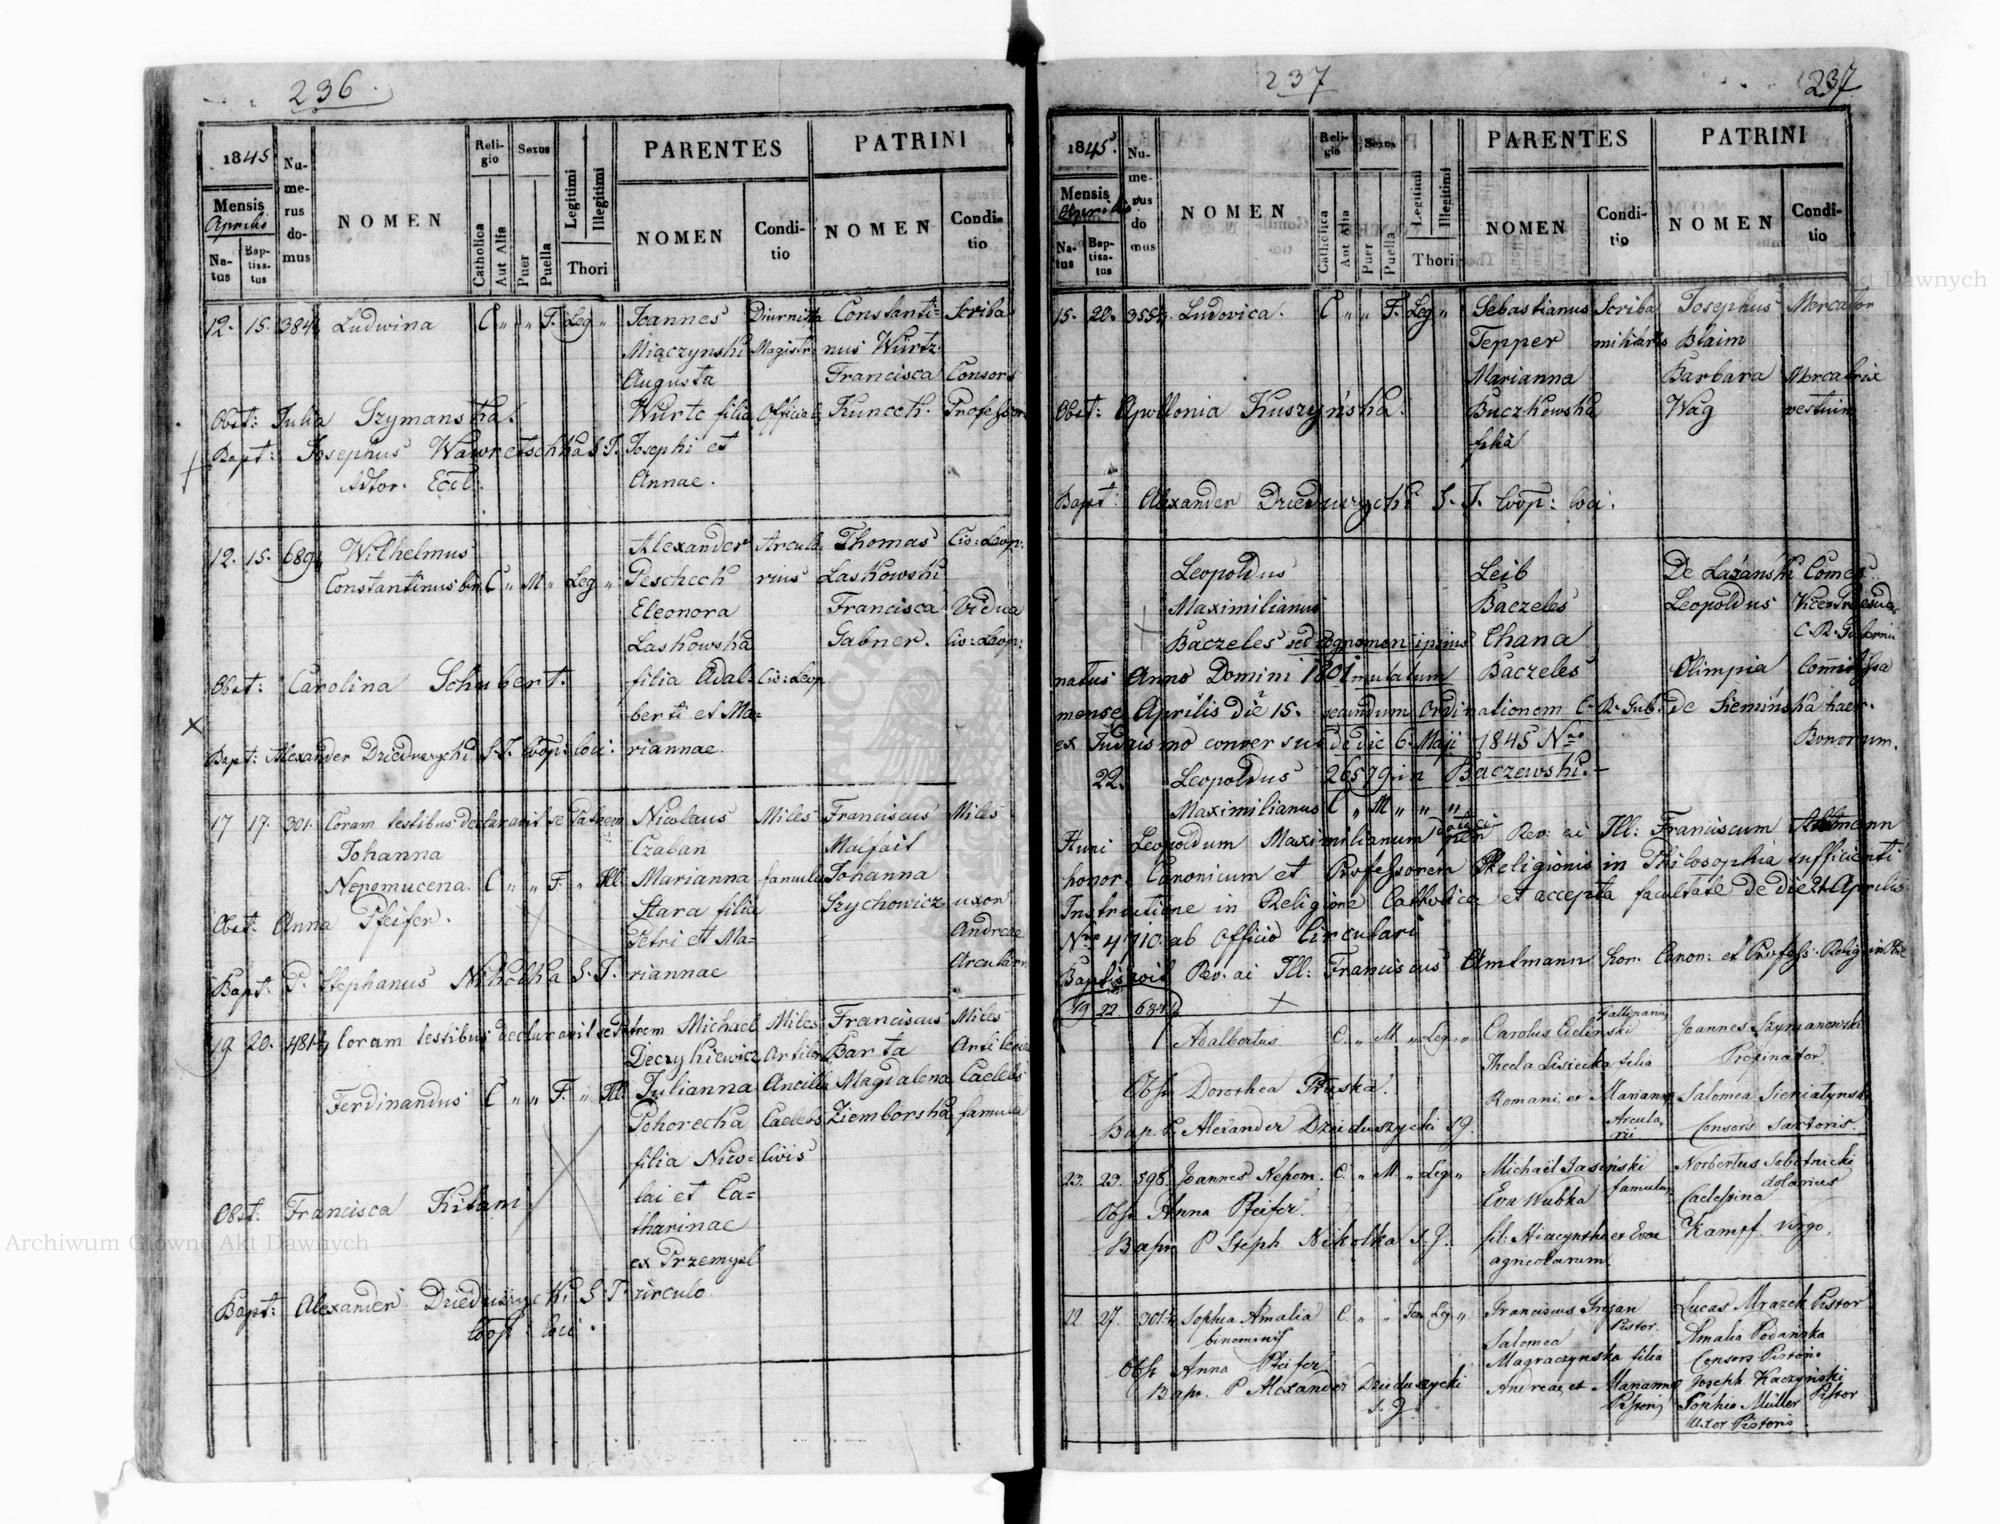 236.
1845
Mensis
Aprilis
Natus
Baptisatus
Numerus domus
NOMEN
Religio
Catholica
Aut Alia
Sexus
Puer
Puella
Legitimi
Illegitimi
Thori
PARENTES
NOMEN
Conditio
PATRINI
NOMEN
Conditio
12. 15. 384 Ludwina C " " F. Leg " Joannes Diurnista Constanti= Scriba
Miączynski Magistr: nus Würtz
Augusta Francisca Consors
Obst: Julia Szymanska. Würtc filia Official Kuneth. Professor
Bapt: Josephus Wawretschka S. J. Josephi et
Adtor. Eccl. Annae.
12. 15. 689 Wilhelmus Alexander Arcula Thomas Civ: Leop:
Constantinus bin C " M " Leg " Peschech rius Laskowski
Eleonora Francisca Vidua
Laskowska Gabner. Civ: Leop:
Obst: Carolina Schubert. filia Adal= Civ: Leop
berti et Ma=
Bapt: Alexander Dzieduszycki S. J. Coop: loci: riannae.
17 17. 301. Coram testibus declaravit se Patrem Nicolaus Miles Franciscus Miles
Johanna Czaban Malfait
Nepomucena. C " " F. " Ill. Marianna famula Johanna
Stara filia Szychowicz uxor
Obst: Anna Pfeifer. Petri et Ma= Andreae
Bapt: P. Stephanus Nikolka S. J. riannae Arcular
19 20. 481 Coram testibus declaravit se Patrem Michael Miles Franciscus Miles
Deczykiewicz Artiler Barta Artilerie
Ferdinandus C " " F. " Ill. Julianna Ancilla Magdalena Caelebs
Pohorecka Caelebs Ziemborska famula
filia Nico= livis
lai et Ca=
Obst: Francisca Kilam tharinae
ex Przemysl
Bapt: Alexander Dzieduszycki S. J. circulo
Coop loci.
237
237
1845.
Mensis
Aprilis
Natus
Baptisatus
Numerus domus
NOMEN
Religio
Catholica
Aut Alia
Sexus
Puer
Puella
Legitimi
Illegitimi
Thori
PARENTES
NOMEN
Conditio
PATRINI
NOMEN
Conditio
15. 20. 355 Ludovica. C " " F. Leg " Sebastianus Scriba Josephus Mercator
Tepper militaris Blaim
Marianna Barbara Mercatrix
Obst: Apollonia Kuszyńska. Buczkowska Wag vestium
filia
Bapt: Alexander Dzieduszycki S. J. Coop: loci.
Leopoldus Leib De Lażanski Comes
Maximilianus Baczeles Leopoldus Vice Praesida
Baczeles sed cognomen ipsius Chana C. R. Gubernii
natus Anno Domini 1801 mutatum Baczeles Olimpia Comitissa
mense Aprilis die 15. secundum ordinationem C. R. Gub. de Siemińska haer.
ex Judaismo conversus de die 6. Maji 1845 Nro Bonorum.
22. Leopoldus 26579 in Baczewski.
Maximilianus C " M " " "
Huni Leopoldum Maximilianum Rev: ac Ill: Franciscum Amtmann
honor. Canonicum et Professorem Religionis in Philosophia sufficienti
Instructione in Religione Catholica et accepta facultate de die 21 Aprilis
Nro 4710. ab Officio Circulari
Baptisavit Rev: ac Ill: Franciscus Amtmann hon. Canon: et Profess. Relig. in Phi
19 22 684
Adalbertus C. " M " Leg. " Carolus Cielinski Gallinarius Joannes Szymanowski
Thecla Lisiecka filia Propinator.
Obst. Dorothea Pruska. Romani et Marianna Salomea Sieniatynska
Bap. P. Alexander Dzieduszycki S. J. Arcularii Consors Sartoris.
23. 23. 598. Joannes Nepom. C. " M " Leg " Michael Jasiński Norbertus Sobotnicki
Obst. Anna Pfeifer. Eva Wubka famulus Caelestina dolarius
Bap. P. Steph. Nikolka S. J. fil: Hiacynthi et Evae Kampf. virgo.
agricolarum
22 27. 301. Sophia Amalia C. " " Fem. Leg. " Franciscus Grysan Lucas Mrazek Pistor
binominis Salomea Pistor. Amalia Podańska
Obst. Anna Pfeifer Magraczynska filia Consors Pistoris
Bap. P. Alexander Dzieduszycki Andreae et Marianna Joseph Kaczyński
S. J. Pistoris Sophia Müller Pistor
Uxor Pistoris.
Archiwum Główne Akt Dawnych
Archiwum Główne Akt Dawnych